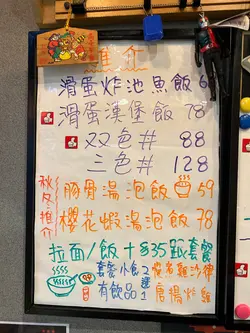 滑蛋炸池魚飯 6
滑蛋漢堡飯 78
双色丼 88
三色丼 128
秋冬推介
豚骨湯泡飯 59
櫻花蝦湯泡飯 78
拉面/飯+$35跟套餐
套餐小食
有飲品
2選1
唐揚炸雞